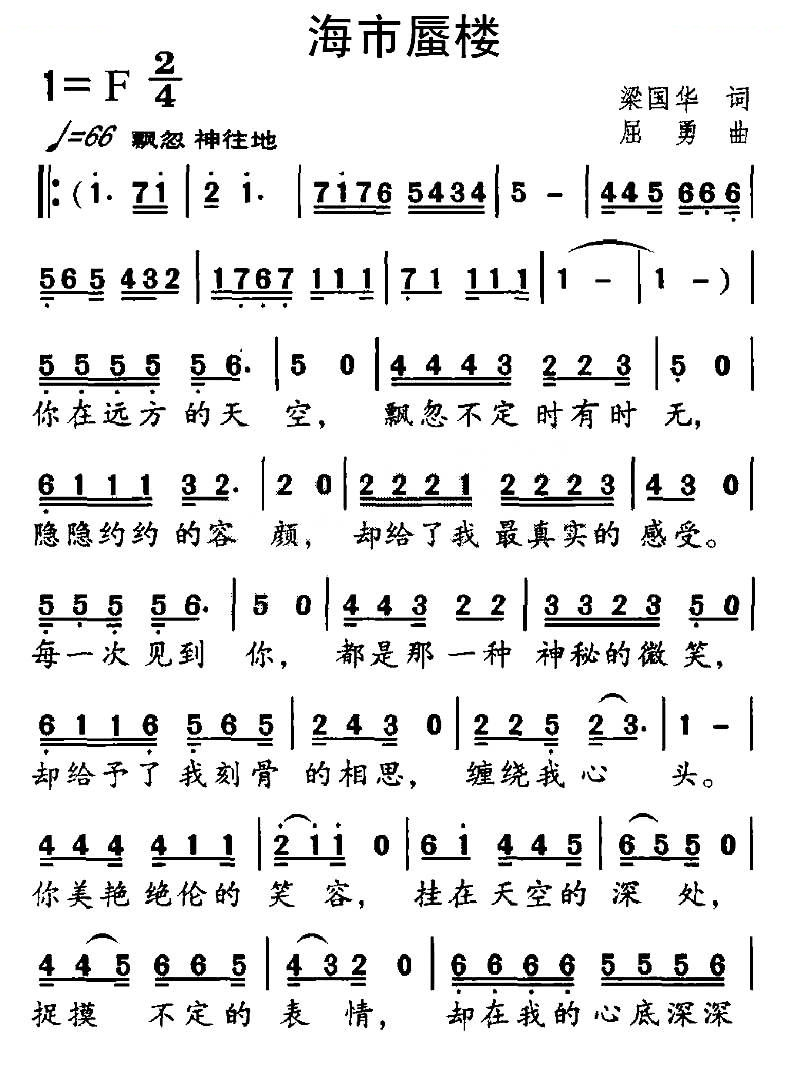 海市蜃楼
1=F 2/4
梁国华 词
♩=66 飘忽 神往地
屈 勇 曲
‖:(1· 71 | 2 1· | 7176 5434 | 5 - | 445 666 |
565 432 | 1767 111 | 71 111 | 1 - | 1 -) |
5555 56· | 5 0 | 4443 223 | 5 0 |
你在远方 的天 空， 飘忽不定 时有时 无，
6111 32· | 2 0 | 2221 2223 | 43 0 |
隐隐约约 的容 颜， 却给了我 最真实的 感受。
555 56· | 5 0 | 443 22 | 3323 50 |
每一次 见到 你， 都是那 一种 神秘的微 笑，
6116 565 | 243 0 | 225 23· | 1 - |
却给予了 我刻骨 的相思， 缠绕我 心 头。
444 411 | 211 0 | 61 445 | 655 0 |
你美艳 绝伦的 笑 容， 挂在 天空的 深 处，
445 665 | 432 0 | 6666 5556 |
捉摸 不定的 表 情， 却在我的 心底深深